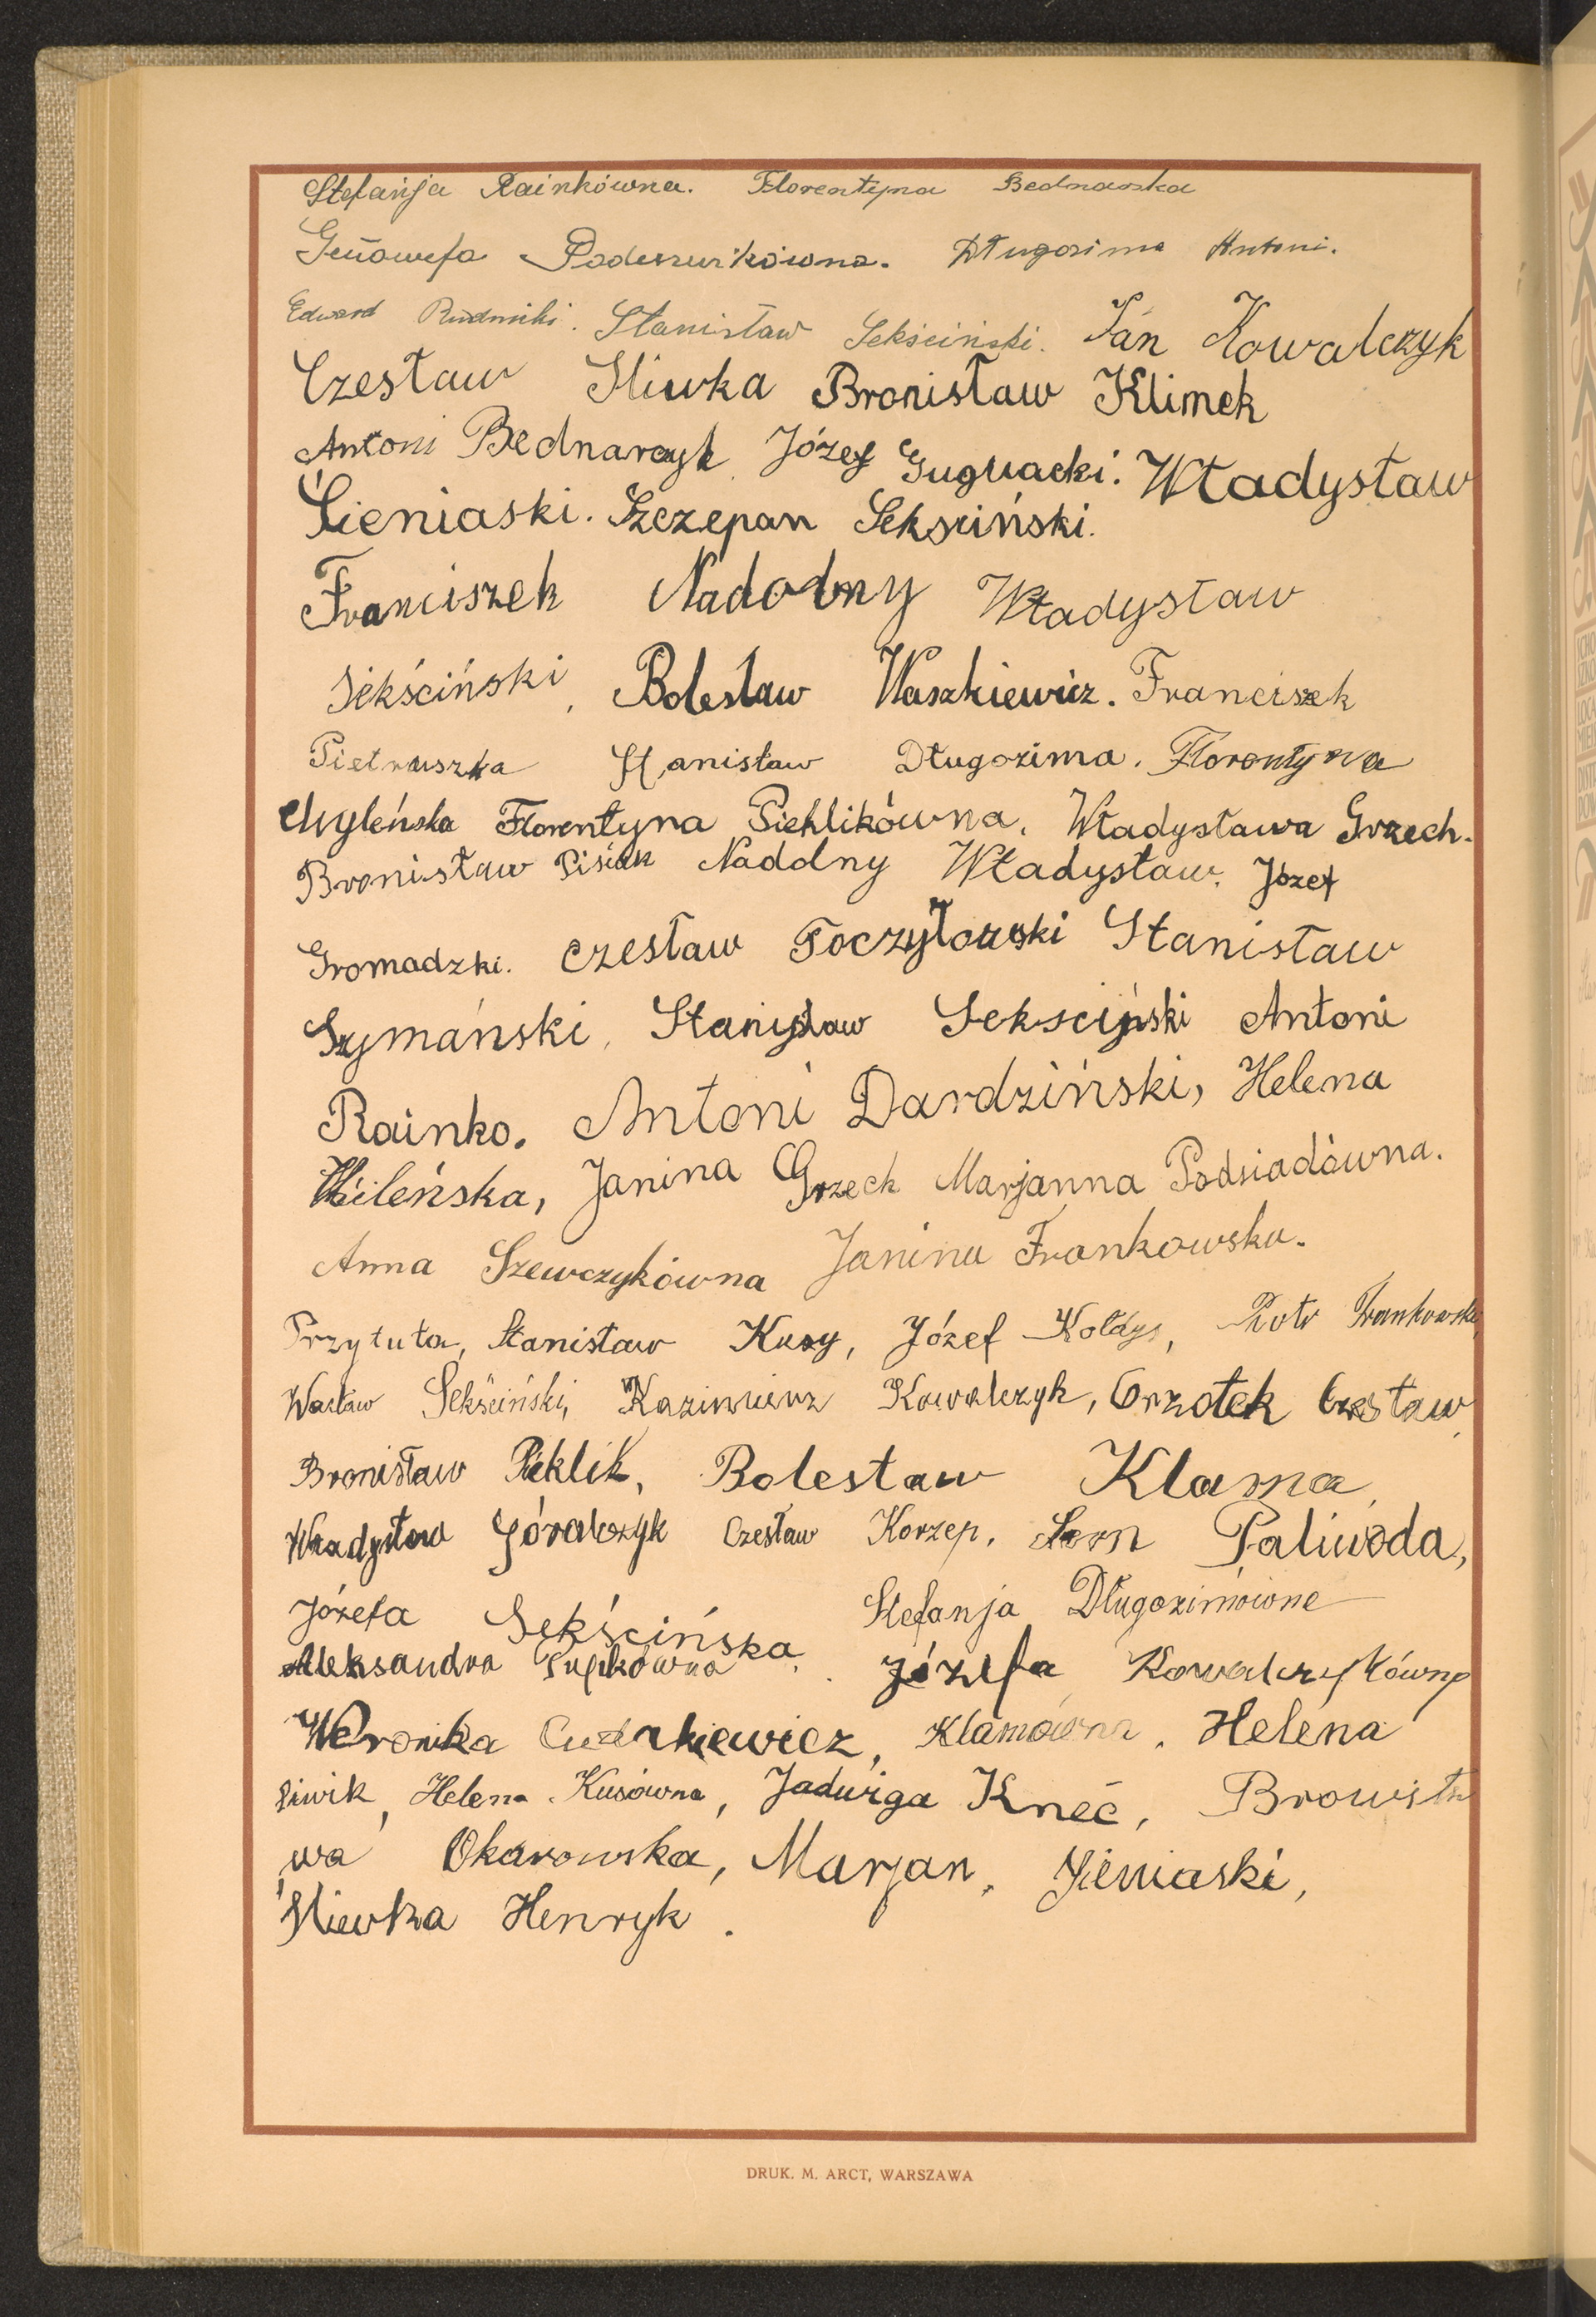 Stefanja Rainkówna. Florentyna Bednarska
Genowefa Podeszwikówna. Długozima Antoni.
Edward Rudnicki. Stanisław Sekściński. Jan Kowalczyk
Czesław Śliwka Bronisław Klimek
Antoni Bednarczyk Józef Gugnacki. Władysław
Sieniaski. Szczepan Seksciński.
Franciszek Nadolny Władysław
Sekściński, Bolesław Waszkiewicz. Franciszek
Pietruszka Stanisław Długozima. Florentyna
Chyleńska Florentyna Pieklikówna. Władysława Grzech.
Bronisław Pisiak Naddny Władysław. Józef
Gromadzki. Czesław Toczyłowski Stanisław
Szymański, Stanisław Seksciński Antoni
Rainko. Antoni Dardziński, Helena
Wileńska, Janina Grzech Marjanna Podsiadówna.
Anna Szewczykówna Janina Frankowska.
Przytuła, Stanisław Kusy, Józef Kołdys, Piotr Frankowski,
Wacław Sekściński, Kazimierz Kowalczyk, Orzołek Czesław,
Bronisław Pieklik, Bolesław Klama,
Władysław Góralczyk Czesław Korzep, Paliwoda,
Józefa Sekścińska, Stefanja Długozimówne
Aleksandra Józefa Kowalczykówna
Weronika Klamówna, Helena
Siwik, Helena Kusówna, Jadwiga Kneć, Bronisła
wa Okarowska, Marjan, Sieniaski,
Śliewka Henryk.
DRUK. M. ARCT, WARSZAWA